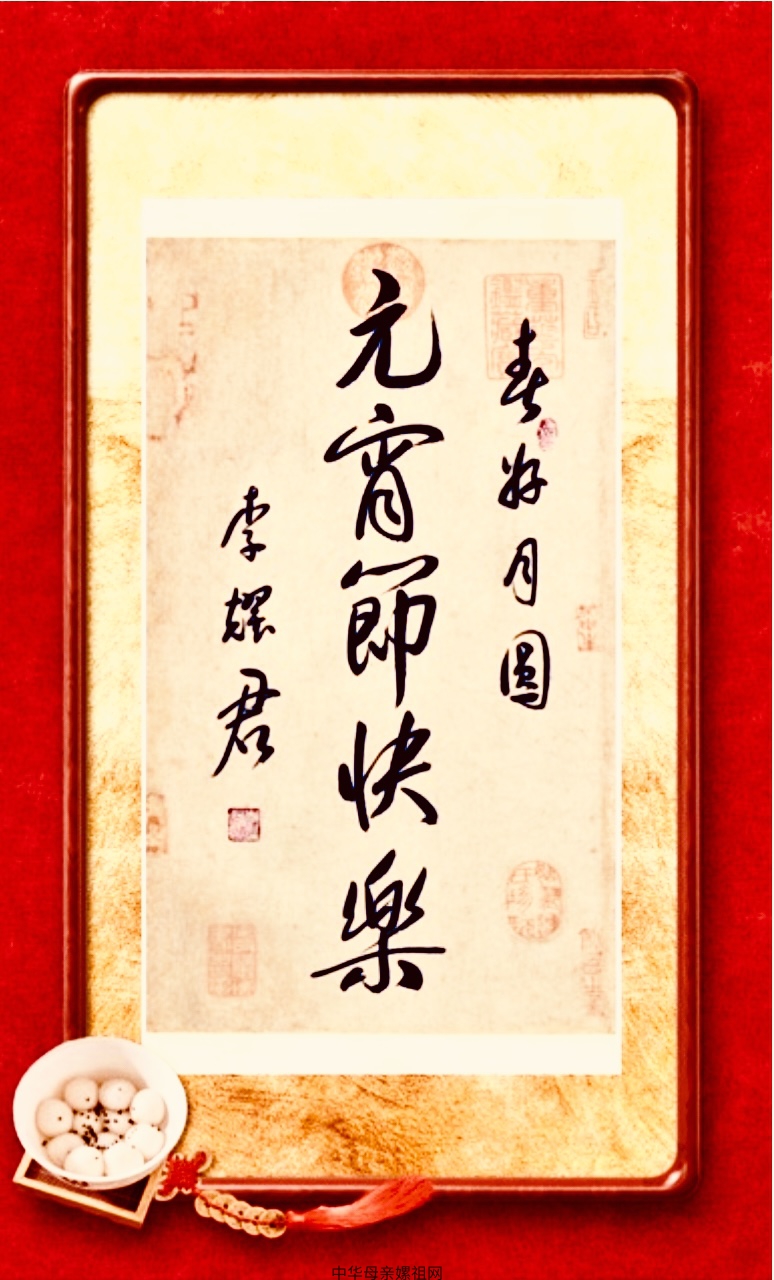 春好月圓
元宵節快樂
李耀君
中华母亲嫘祖网